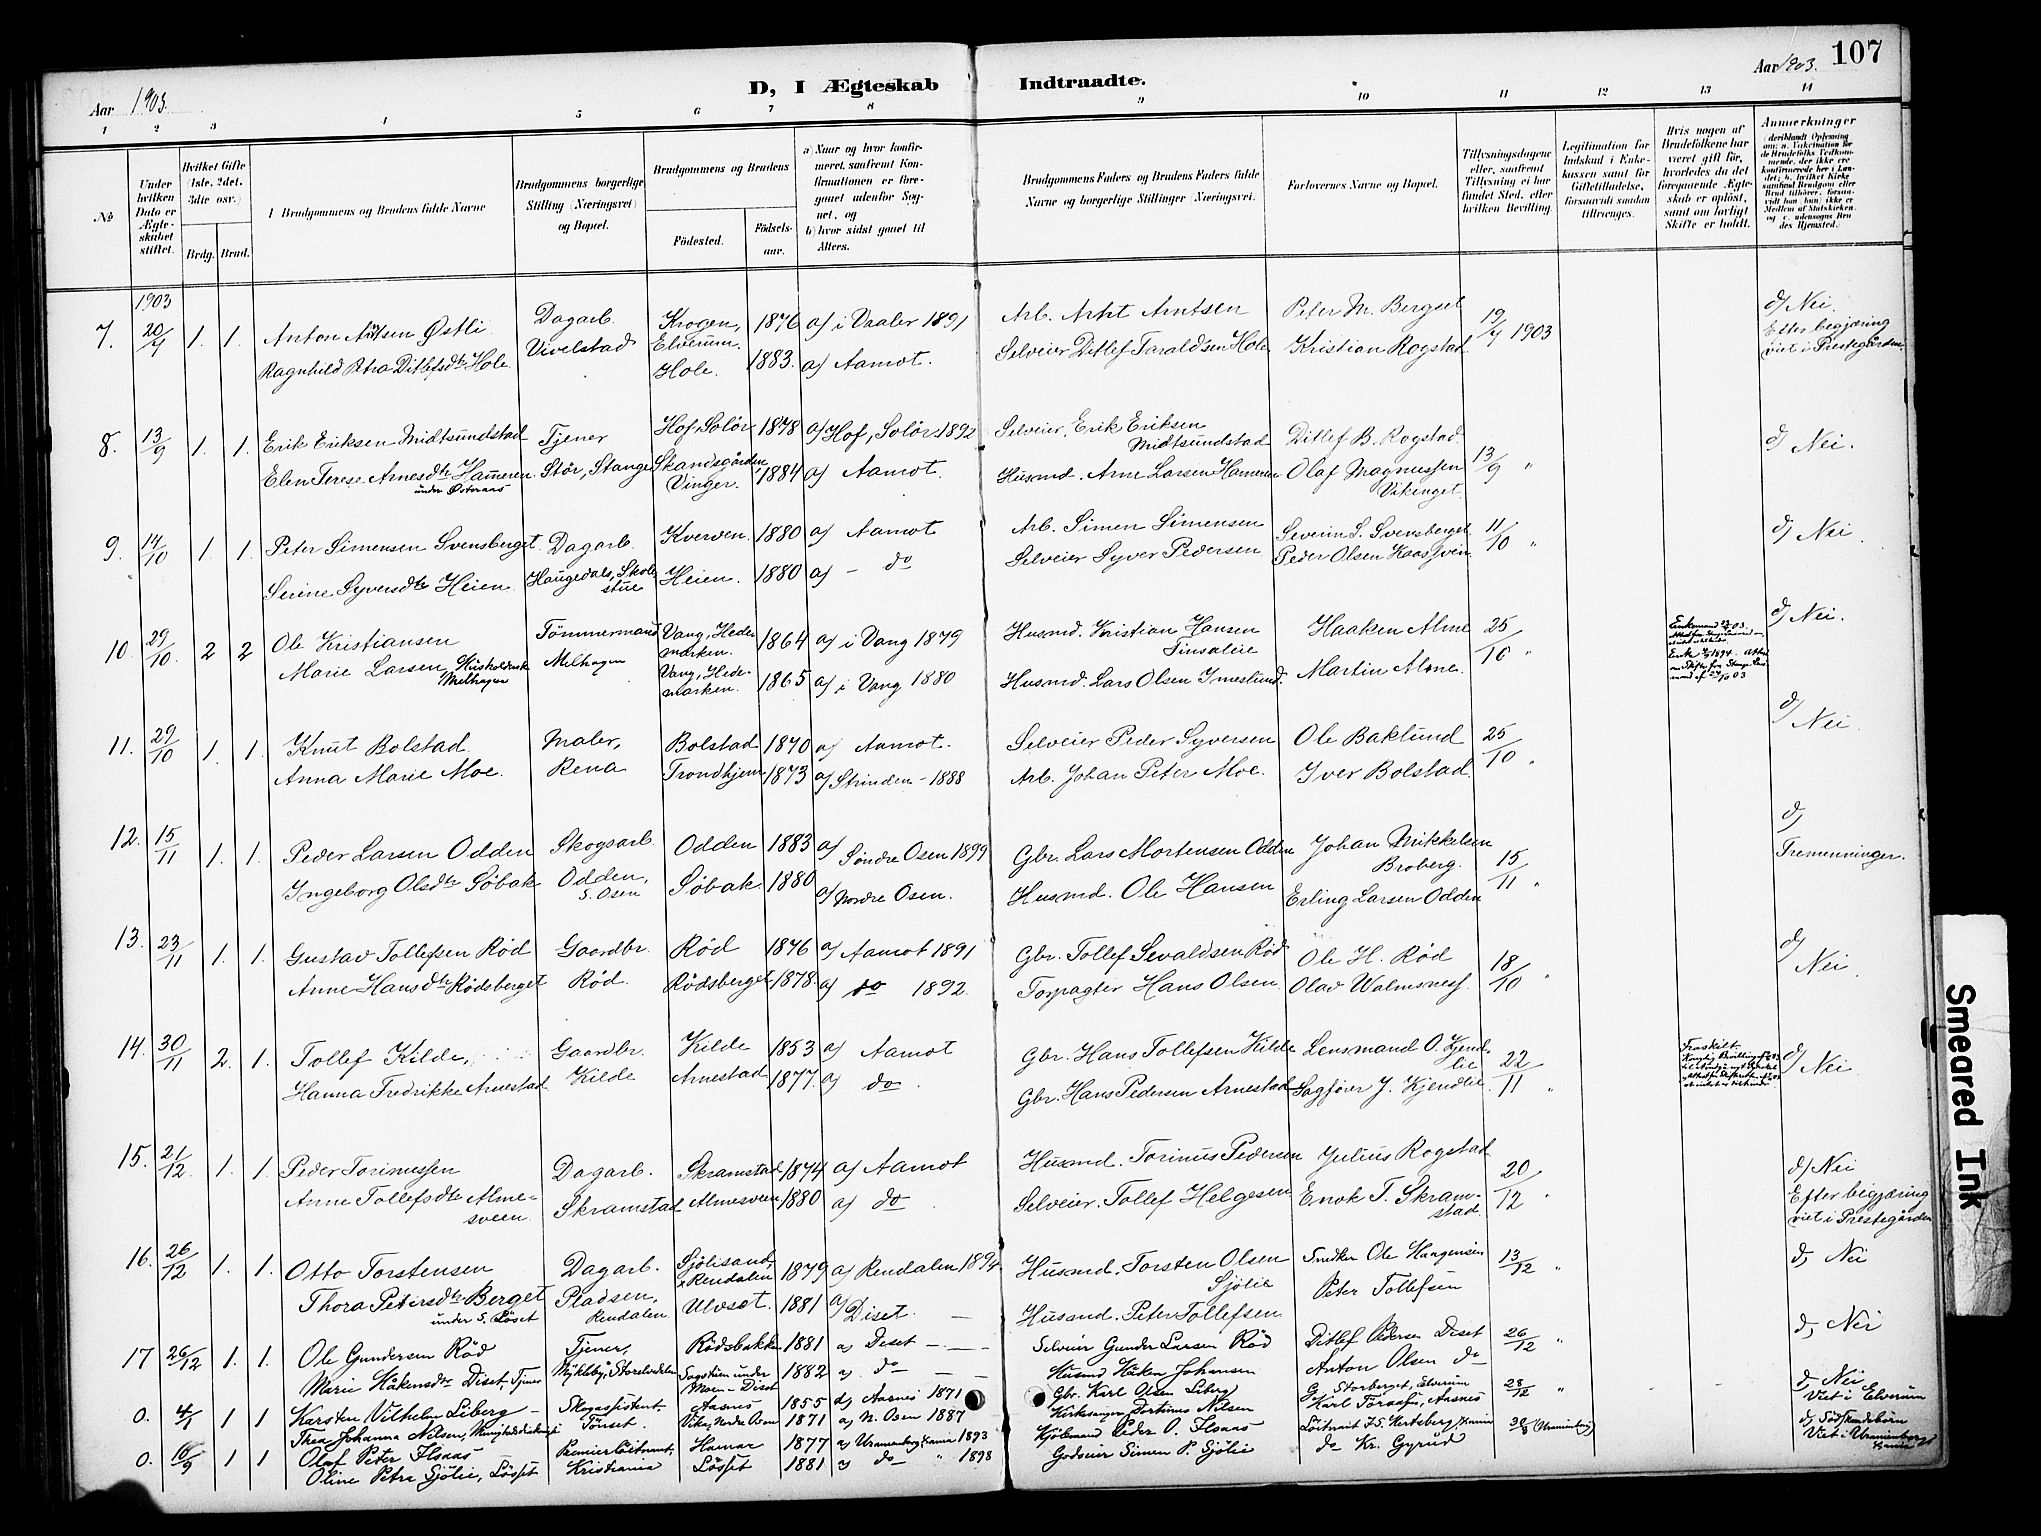 107
Aar 1903.
D, I Ægteskab Indtraadte.
Aar 1903.
1 2 3 4 5 6 7 8 9 10 11 12 13 14
No
Under hvilken Dato er Ægteskabet stiftet.
Hvilket Gifte (1ste, 2det, 3die osv.)
Brdg. Brud.
Brudgommens og Brudens fulde Navne
Brudgommens borgerlige Stilling (Næringsvei) og Bopæl.
Brudgommens og Brudens
Födested.
Födselsaar.
a) Naar og hvor konfirmeret, saafremt Konfirmationen er foregaaet udenfor Sognet, og
b) hvor sidst gaaet til Alters.
Brudgommens Faders og Brudens Faders fulde Navne og borgerlige Stillinger (Næringsvei).
Forlovernes Navne og Bopæl.
Tillysningsdagene eller, saafremt Tillysning ei har fundet Sted, efter hvilken Bevilling.
Legitimation for Indskud i Enkekassen samt for Giftetilladelse, forsaavidt saadan tiltrænges.
Hvis nogen af Brudefolkene har været gift før, hvorledes da det foregaaende Ægteskab er oplöst, samt om lovligt Skifte er holdt.
Anmærkninger
1903
7. 20/4 1. 1. Anton Østli. Dagarb. Krogen, Elverum. 1876 a) i Vaaler 1891 Arb. Arnt Arntsen Peter M. Bergset 19/4 1903 d) Nei
Ragnhild Petra Ditlefsdtr Hole. Vivelstad Hole. 1883. a) Aamot. Selveier Ditlef Taraldsen Hole Kristian Rogstad Efter begjæring viet i Prestegården.
8. 13/9 1. 1. Erik Eriksen Midtsundstad Tjener Hof, Solör 1878 a) Hof, Solör 1892 Selveier. Erik Eriksen Midtsundstad Ditlef B. Rogstad. 13/9 " d) Nei.
Elen Terese Arnesdtr Hameren under Østeraas Stör, Stange Skandsgården Vinger. 1884 a) Aamot. Husmd. Arne Larsen Hameren Olaf Magnussen Vikenget.
9. 14/10 1. 1. Peter Simensen Svensberget. Dagarb. Kverven. 1880 a) Aamot Arb. Simen Simensen Severin S. Svensberget 11/10 " d) Nei.
Serine Syversdtr Heien. Haugedals, Skolestue Heien. 1880 a) – do Selveier Syver Pedersen Peder Olsen
10. 29/10. 2 2 Ole Kristiansen Tömmermand Vang, Hedemarken. 1864 a) i Vang 1879 Husmd. Kristian Hansen Haaken Alme 25/10 " d) Nei.
Marie Larsen, Melhagen Melhagen Vang, Hedemarken. 1865 a) i Vang 1880 Husmd. Lars Olsen Imeslund. Martin Alme.
11. 29/10 1. 1. Knut Bolstad. Maler, Bolstad 1870 a) Aamot. Selveier Peder Syversen Ole Baklund 25/10 " d) Nei.
Anna Marie Moe. Rena Trondhjem 1873 a) Strinden – 1888 Arb. Johan Peter Moe. Iver Bolstad.
12. 15/11 1. 1. Peder Larsen Odden Skogsarb. Odden 1883 a) Söndre Osen 1899 Gbr. Lars Mortensen Odden Johan Mikkelsen Broberg. 15/11 " d) Tremenninger.
Ingeborg Olsdtr Söbak Odden, S. Osen Söbak 1880 a) Nordre Osen. Husmd. Ole Hansen Erling Larsen Odden
13. 23/11 1. 1. Gustav Tollefsen Röd Gaardbr. Röd 1876 a) Aamot 1891 Gbr. Tollef Sevaldsen Röd Ole H. Röd 18/10 " d) Nei.
Anne Hansdtr Rödsberget Röd. Rödsberget 1878. a) do 1892. Torpagter Hans Olsen Olav Walmsness.
14. 30/11 2. 1. Tollef Kilde, Gaardbr. Kilde 1853 a) Aamot Gbr. Hans Tollefsen Kilde Lensmand O. Kjendlie 22/11 " Fraskilt d) Nei.
Hanna Fredrikke Arnestad Kilde Arnestad 1877. a) do. Gbr. Hans Pedersen Arnestad Sagförer J. Kjendlie.
15. 21/12. 1. 1. Peder Torinussen Dagarb. Skramstad 1874 a) Aamot Husmd. Torinus Pedersen Julius Rogstad 20/12 " d) Nei
Anne Tollefsdtr Almesveen. Skramstad Almesveen 1880 a) do. Selveier. Tollef Helgesen Enok T. Skramstad. Efter begjæring viet i Prestegården
16. 26/12 1. 1. Otto Torstensen Dagarb. Sjölisand, Rendalen 1879 a) Rendalen 1894 Husmd. Torsten Olsen Sjölie Snedker Ole Haagensen 13/12 " d) Nei
Thora Petersdtr Berget under S. Löset Pladsen, Rendalen Ulvset. 1881 a) Diset. — Husmd. Peter Tollefsen Peter Tollefsen
17 26/12 1. 1. Ole Gundersen Röd Tjener, Rödsbakken 1881 a) Diset – – Selveier Gunder Larsen Röd Ditlef Pedersen Diset 26/12 " d) Nei
Marie Håkensdtr Diset, Tjener Mykleby, Storelvedalen under Moen – Diset 1882 a) do – – Husmd Håken Johansen Anton Olsen do
0. 4/1 1 1 Karsten Vilhelm Liberg – Skogassistent, Aasnes 1855 a) Aasnes 1871 Gbr. Karl Olsen Liberg G. Storberget, Elverum 28/12 " d) Nei
Thea Johanna Nilsen, Tönset. Nordre Osen 1871 a) N. Osen 1887 Kirkesanger Nilsen Karl Aasnes Viet i Elverum
0. 16/9 1 1 Olaf Peter Ilsaas Premierlöitnant, Hamar 1877 a) Uranienborg, Xiania 1893 Kjöbmand Peder O. Ilsaas Löitnant (Uranienborg) d) Södskendebörn
Oline Petra Sjölie, Lösset Kristiania Lösset 1881 a) do " 1898 Godseier Simen P. Sjölie do Kr. Gyrud Viet i Uranienborg Xania
Smeared Ink